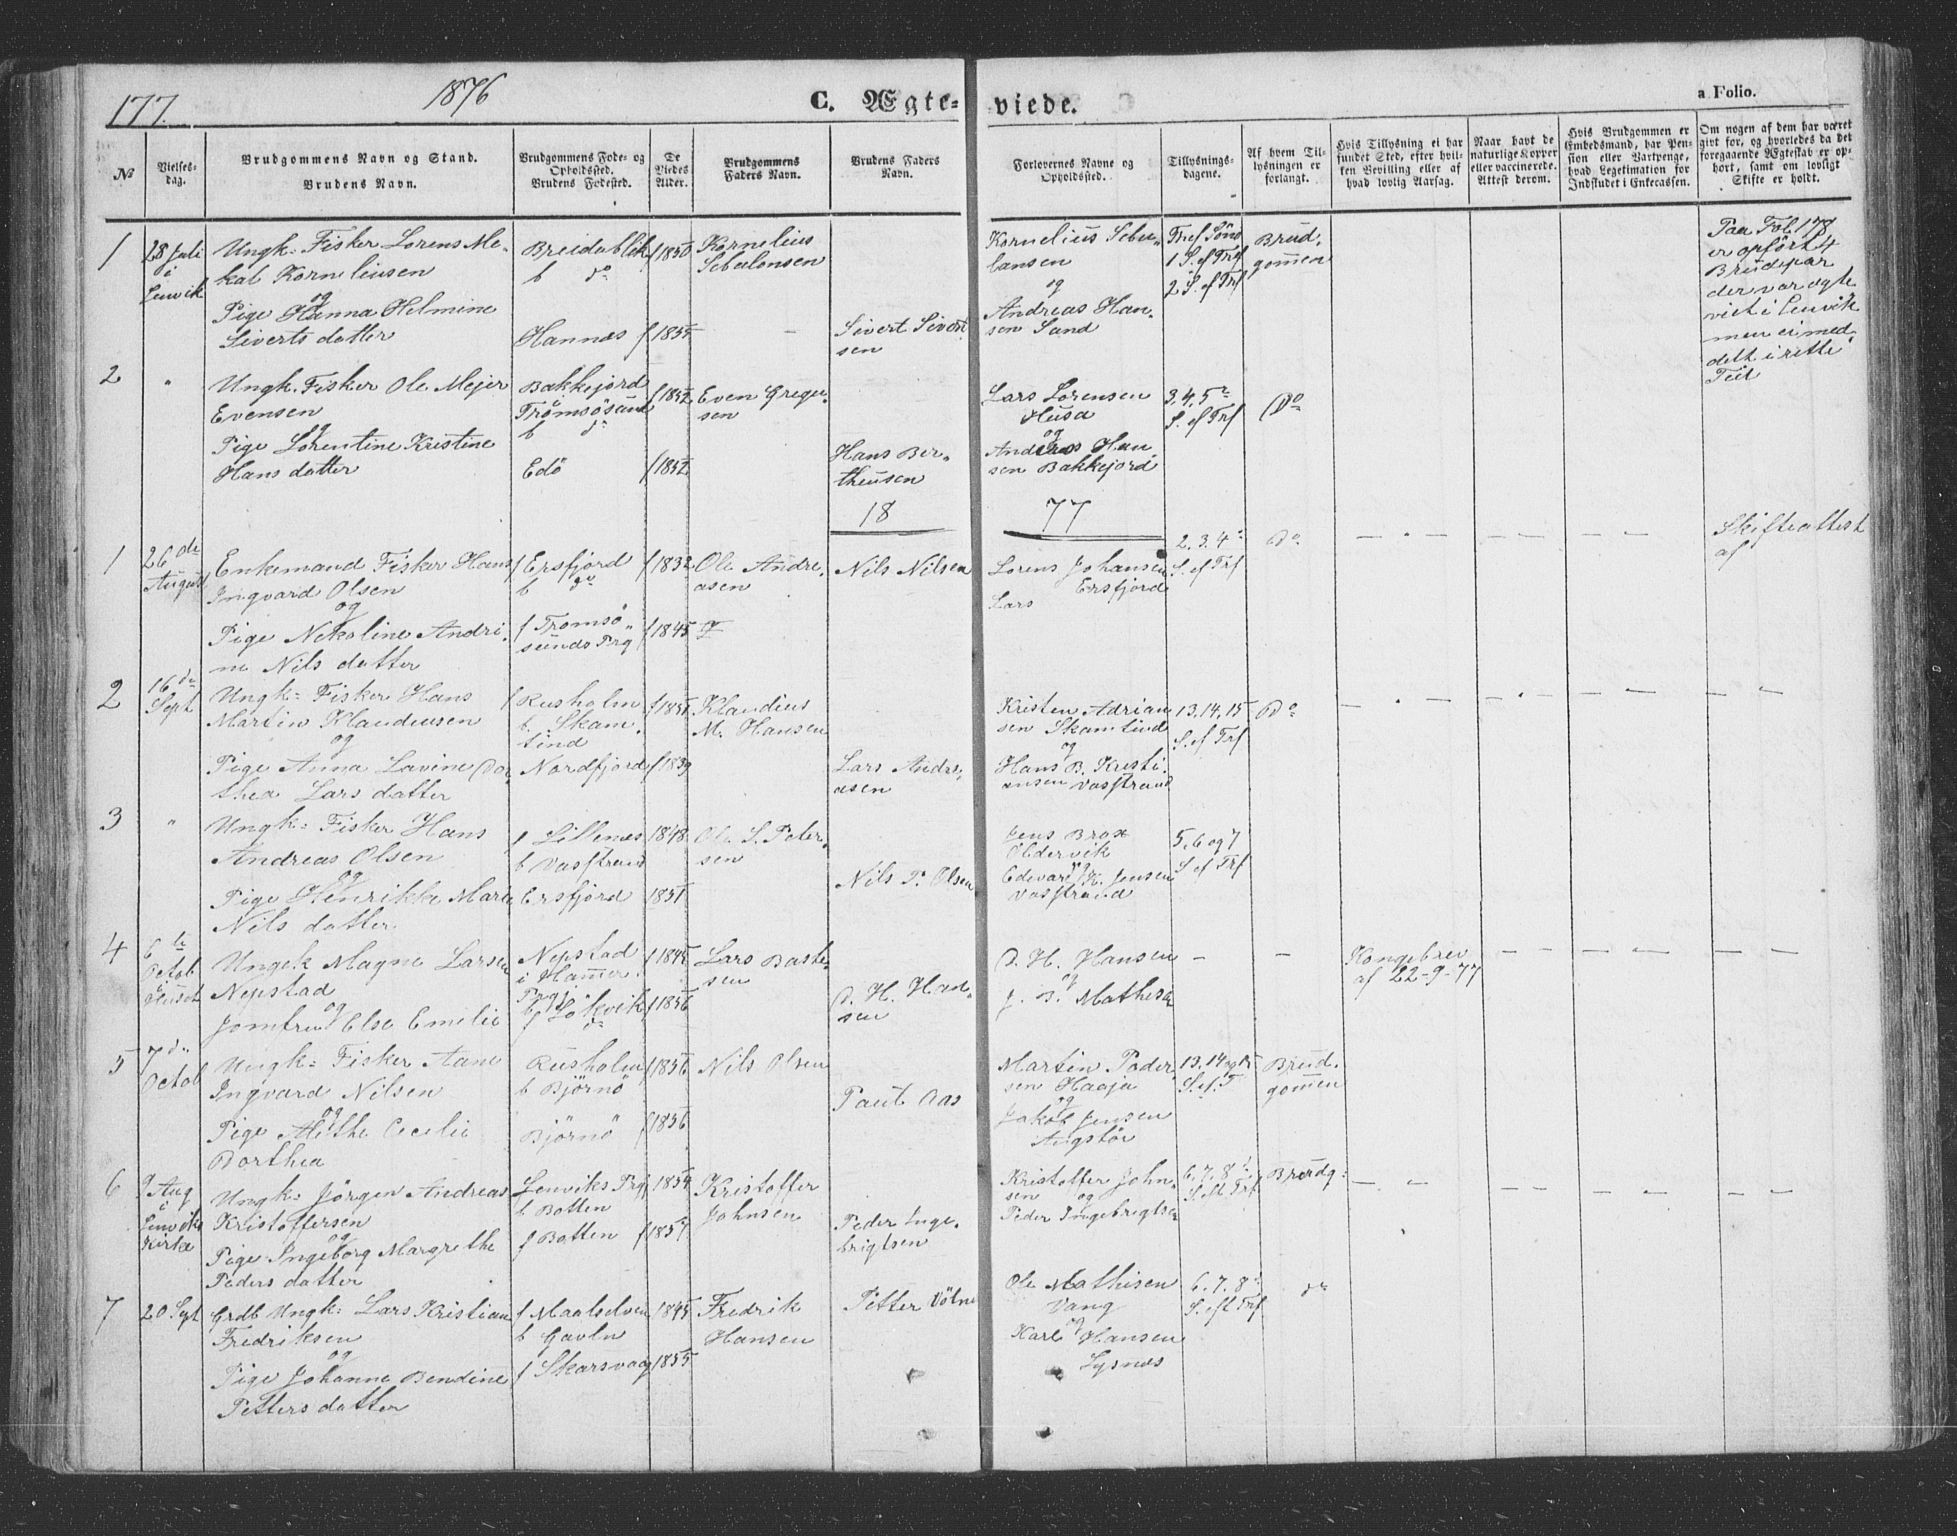 177.
1876
C. Ægte-
viede.
a Folio.
№
Vielses-
dag.
Brudgommens Navn og Stand.
Brudens Navn.
Brudgommens Føde- og
Opholdssted.
Brudens Fødested.
De
Viedes
Alder.
Brudgommens
Faders Navn.
Brudens Faders
Navn.
Forlovernes Navne og
Opholdssted.
Tillysnings-
dagene.
Af hvem Til-
lysningen er
forlangt.
Hvis Tillysning ei har
fundet Sted, efter hvil-
ken Bevilling eller af
hvad lovlig Aarsag.
Naar havt de
naturlige Kopper
eller vaccinerede.
Attest derom.
Hvis Brudgommen er
Embedsmand, har Pen-
sion eller Vartpenge,
hvad Legetimation for
Indskudet i Enkecassen.
Om nogen af dem har været
givt før, og hvorledes da det
foregaaende Ægteskab er op-
hørt, samt om lovligt
Skifte er holdt.
1
28 Juli
i
Lenvik
Ungk: Fisker Lorens Me-
kal Korneliusen
og
Pige Hanna Helmine
Siverts datter
Breidablik
b do
Hannæs
f 1850
f 1855
Kornelius
Sebulonsen
Sivert Sivert
sen
Kornelius Sebu-
lansen
og
Andreas Han-
sen Sand
Thef Sønd
1 S. ef Trf
2 S. ef Trf
Brud-
gommen
Paa Fol 178
er opført 4
Brudepar
der var ægte
viet i Lenvik
men ei med
delt i rette
Tid
2
"
Ungk. Fisker Ole Mejer
Evensen
og
Pige Lorentine Kristine
Hans datter
Bakkejord
Tromsösund
b do
Edö
f 1852
f 1852
Even Gregu-
sen
Hans Ber-
theusen
Lars Lorensen
Husa
og
Anders Han-
sen Bakkejord
3, 4, 5te
S. ef Trf
Do
18
77
1
26de
August
Enkemand Fisker Hans
Ingvard Olsen
og
Pige Nekoline Andri-
ne Nils datter
f Ersfjord
b do
f Tromsö-
sunds Prg
f 1832
f 1845
Ole Andre-
asen
Nils Nilsen
Lorens Johansen
Ersfjord
Lars
2, 3, 4de
S. ef Trf
Do
Skifteattest
af
2
16de
Sept
Ungk: Fisker Hans
Martin Klaudiusen
og
Pige Anna Lavine Do-
thea Lars datter
f Rusholm
b. Skam-
tind
Nordfjord
f 1851
f 1839
Klaudius
M. Hansen
Lars Andre-
asen
Kristen Adrian
sen Skamtind
og
Hans B. Kristi-
ansen Vasstrand
13, 14, 15
S. ef Trf
Do
3
"
Ungk: Fisker Hans
Andreas Olsen
og
Pige Henrikke Marie
Nils datter
f Lillenes
b Vasstrand
Ersfjord
1848
1851
Ole S. Peter-
sen
Nils P. Olsen
Jens Brox
Oldervik
og
Edevart K. Jensen
Vasstrand
5, 6 og 7
S ef Trf
4
6te
Octob
i Huset
Ungk Magne Larsen
Nepstad
og
Jomfru Else Emelie
Nepstad
i Hamer
Prg
b Lökvik
f do
f 1842
f 1856
Lars Baste-
sen
D. H. Han-
sen
D. H. Hansen
og
J. B. Mathisen
Kongebrev
af 22-9-77
5
7de
Octob
Ungk: Fisker Aane
Ingvard Nilsen
og
Pige Alethe Cecilie
Dorthea
Rusholm
b Björnö
Björnö
f 1856
f 1856
Nils Olsen
Paul Aas
Martin Peder
sen Haaja
og
Jakob Jensen
Angstör
13, 14 og 15
S. ef. T
Brud-
gommen
6
9 Aug
i
Lenviks
Kirke
Ungk: Jörgen Andreas
Kristoffersen
og
Pige Ingeborg Margrethe
Peders datter
Lenviks Prg
b Botten
f Botten
f 1854
f 1857
Kristoffer
Johnsen
Peder Inge-
brigtsen
Kristoffer John-
sen og
Peder Ingebrigtsen
6, 7, 8de
S. M Trf
Brudg:
7
20 Sept
Grdb Ungk: Lars Kristian
Fredriksen
og
Pige Johanne Bendine
Petters datter
f Maalselven
b Gavln
f Skarsvaag
1845
1855
Fredrik
Hansen
Petter Völne
Ole Mathisen
Vang
og
Karl Hansen
Lysnes
6. 7. 8de
S. eft Trf
do